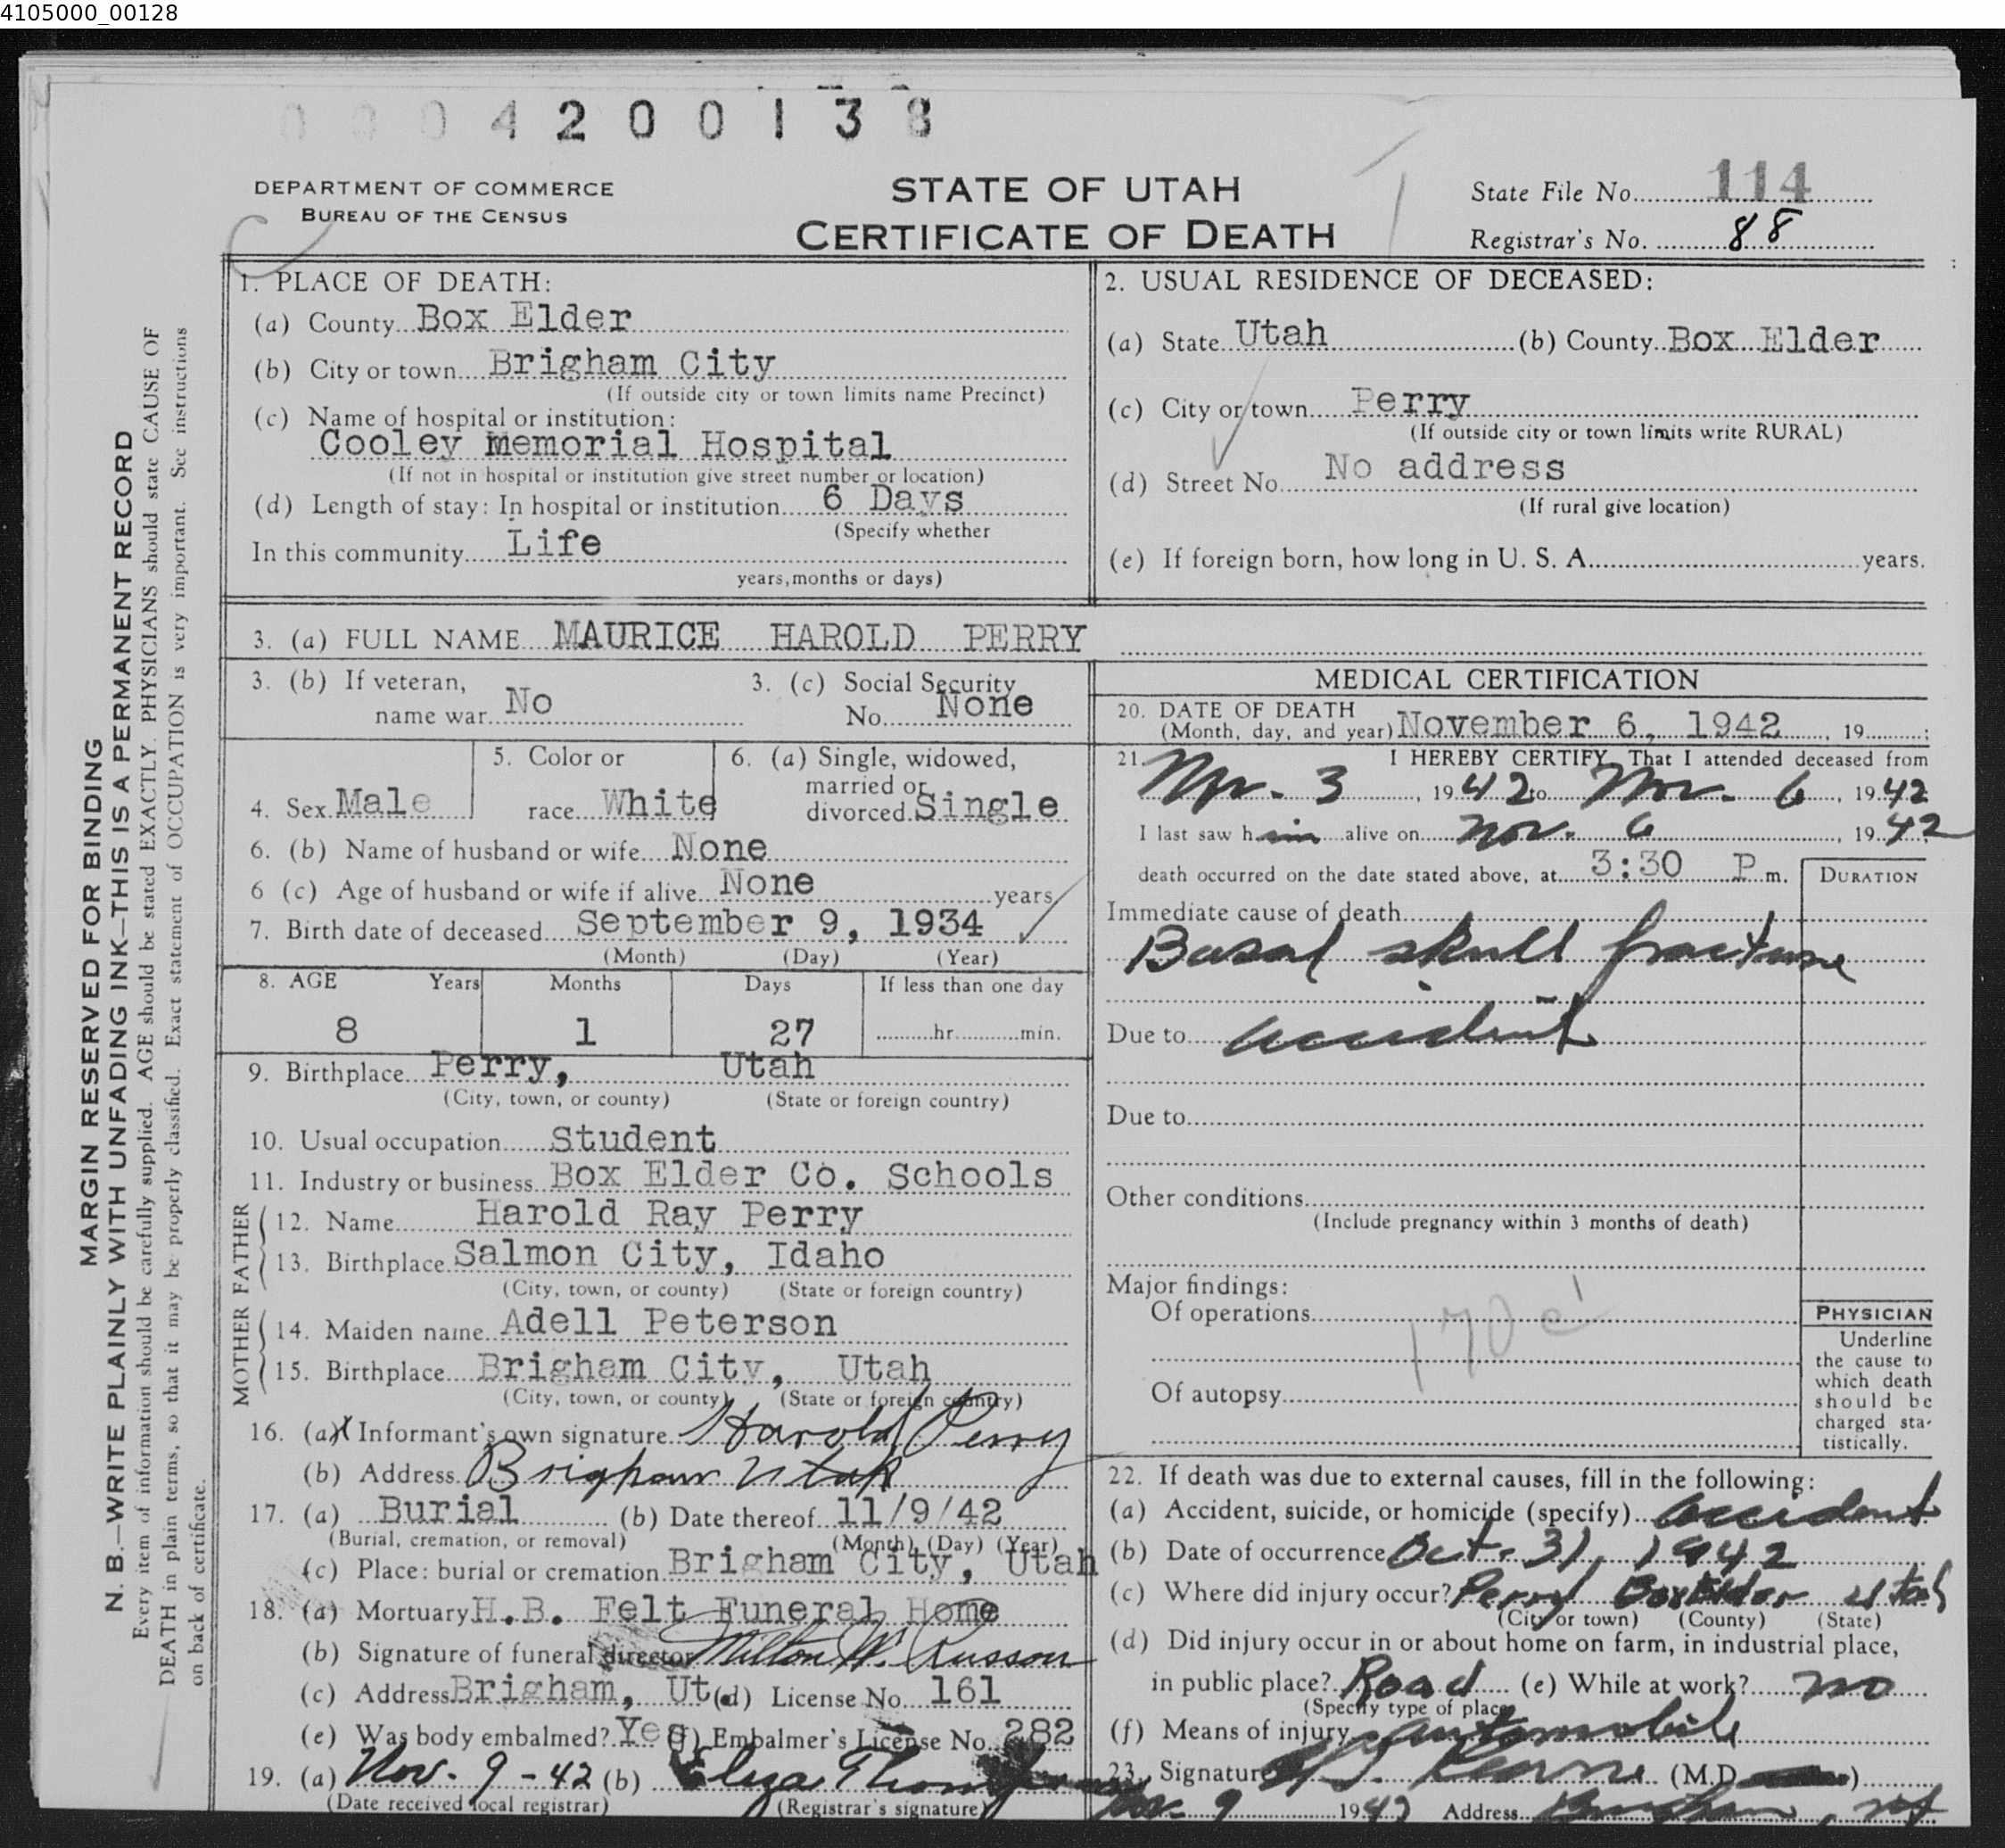 4105000_00128
0004200138
DEPARTMENT OF COMMERCE
BUREAU OF THE CENSUS
STATE OF UTAH
CERTIFICATE OF DEATH
State File No. 114
Registrar's No. 88
MARGIN RESERVED FOR BINDING
N. B.—WRITE PLAINLY WITH UNFADING INK—THIS IS A PERMANENT RECORD
Every item of information should be carefully supplied. AGE should be stated EXACTLY. PHYSICIANS should state CAUSE OF
DEATH in plain terms, so that it may be properly classified. Exact statement of OCCUPATION is very important. See instructions
on back of certificate.
1. PLACE OF DEATH:
(a) County Box Elder
(b) City or town Brigham City
(If outside city or town limits name Precinct)
(c) Name of hospital or institution:
Cooley Memorial Hospital
(If not in hospital or institution give street number or location)
(d) Length of stay: In hospital or institution 6 Days
(Specify whether
In this community Life
years, months or days)
2. USUAL RESIDENCE OF DECEASED:
(a) State Utah (b) County Box Elder
(c) City or town Perry
(If outside city or town limits write RURAL)
(d) Street No. No address
(If rural give location)
(e) If foreign born, how long in U. S. A. years.
3. (a) FULL NAME MAURICE HAROLD PERRY
3. (b) If veteran,
name war No
3. (c) Social Security
No. None
4. Sex Male
5. Color or
race White
6. (a) Single, widowed,
married or
divorced Single
6. (b) Name of husband or wife None
6 (c) Age of husband or wife if alive None years
7. Birth date of deceased September 9, 1934
(Month) (Day) (Year)
8. AGE Years Months Days If less than one day
8 1 27 hr. min.
9. Birthplace Perry, Utah
(City, town, or county) (State or foreign country)
10. Usual occupation Student
11. Industry or business Box Elder Co. Schools
FATHER
12. Name Harold Ray Perry
13. Birthplace Salmon City, Idaho
(City, town, or county) (State or foreign country)
MOTHER
14. Maiden name Adell Peterson
15. Birthplace Brigham City, Utah
(City, town, or county) (State or foreign country)
16. (a) X Informant's own signature Harold Perry
(b) Address Brigham Utah
17. (a) Burial (b) Date thereof 11/9/42
(Burial, cremation, or removal) (Month) (Day) (Year)
(c) Place: burial or cremation Brigham City, Utah
18. (a) Mortuary H.B. Felt Funeral Home
(b) Signature of funeral director Milton W. Russon
(c) Address Brigham, Ut. (d) License No. 161
(e) Was body embalmed? Yes (f) Embalmer's License No. 282
19. (a) Nov. 9 - 42 (b) Eliza
(Date received local registrar) (Registrar's signature)
MEDICAL CERTIFICATION
20. DATE OF DEATH
(Month, day, and year) November 6, 1942, 19 ;
21. I HEREBY CERTIFY, That I attended deceased from
Nov. 3, 1942 to Nov. 6, 1942
I last saw him alive on Nov. 6, 1942
death occurred on the date stated above, at 3:30 P m.
DURATION
Immediate cause of death
Basal skull fracture
Due to accident
Due to
Other conditions
(Include pregnancy within 3 months of death)
Major findings:
Of operations
170c
Of autopsy
PHYSICIAN
Underline
the cause to
which death
should be
charged sta-
tistically.
22. If death was due to external causes, fill in the following:
(a) Accident, suicide, or homicide (specify) accident
(b) Date of occurrence Oct. 31, 1942
(c) Where did injury occur? Perry Box Elder Utah
(City or town) (County) (State)
(d) Did injury occur in or about home on farm, in industrial place,
in public place? Road (e) While at work? no
(Specify type of place)
(f) Means of injury automobile
23. Signature (M.D. )
Nov. 9 1942 Address Brigham, Ut